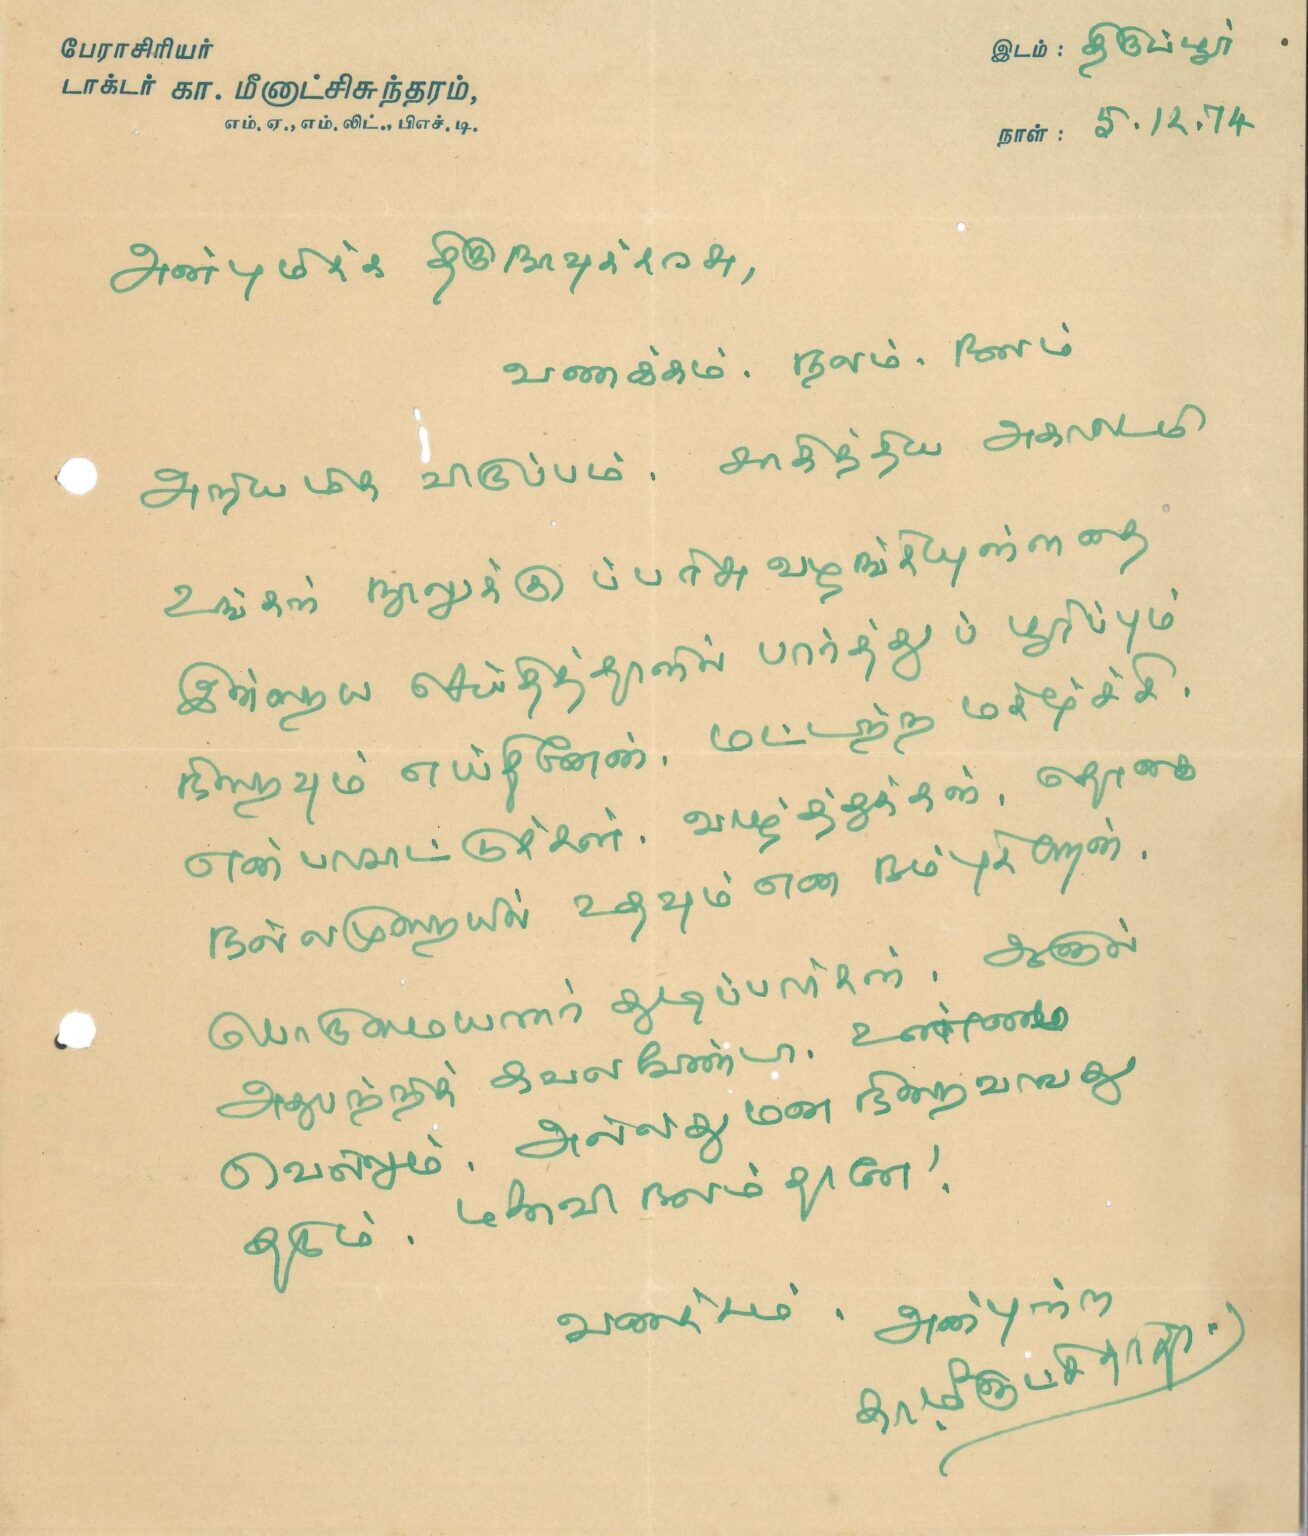 பேராசிரியர்
டாக்டர் கா. மீனாட்சிசுந்தரம்,
எம்.ஏ., எம்.லிட்., பிஎச்.டி.
இடம் : திருப்பூர்
நாள் : 5.12.74
அன்புமிக்க திருநாவுக்கரசு,
வணக்கம். நலம். நலம்
அறிய மிக விருப்பம். சாகித்திய அகாடமி
உங்கள் நூலுக்குப் பரிசு வழங்கியுள்ளதை
இன்றைய செய்தித்தாளில் பார்த்துப் பூரிப்பும்
நிறைவும் எய்தினேன். மட்டற்ற மகிழ்ச்சி.
என் பாராட்டுக்கள். வாழ்த்துக்கள். தொகை
நல்லமுறையில் உதவும் என நம்புகிறேன்.
பொறாமையாளர் துடிப்பார்கள். ஆனால்
அதுபற்றிக் கவலை வேண்டா. உண்மை
வெல்லும். அல்லது மன நிறைவாவது
தரும். மனைவி நலம் தானே!
வணக்கம். அன்புற்ற
கா. மீனாட்சிசுந்தரம்.